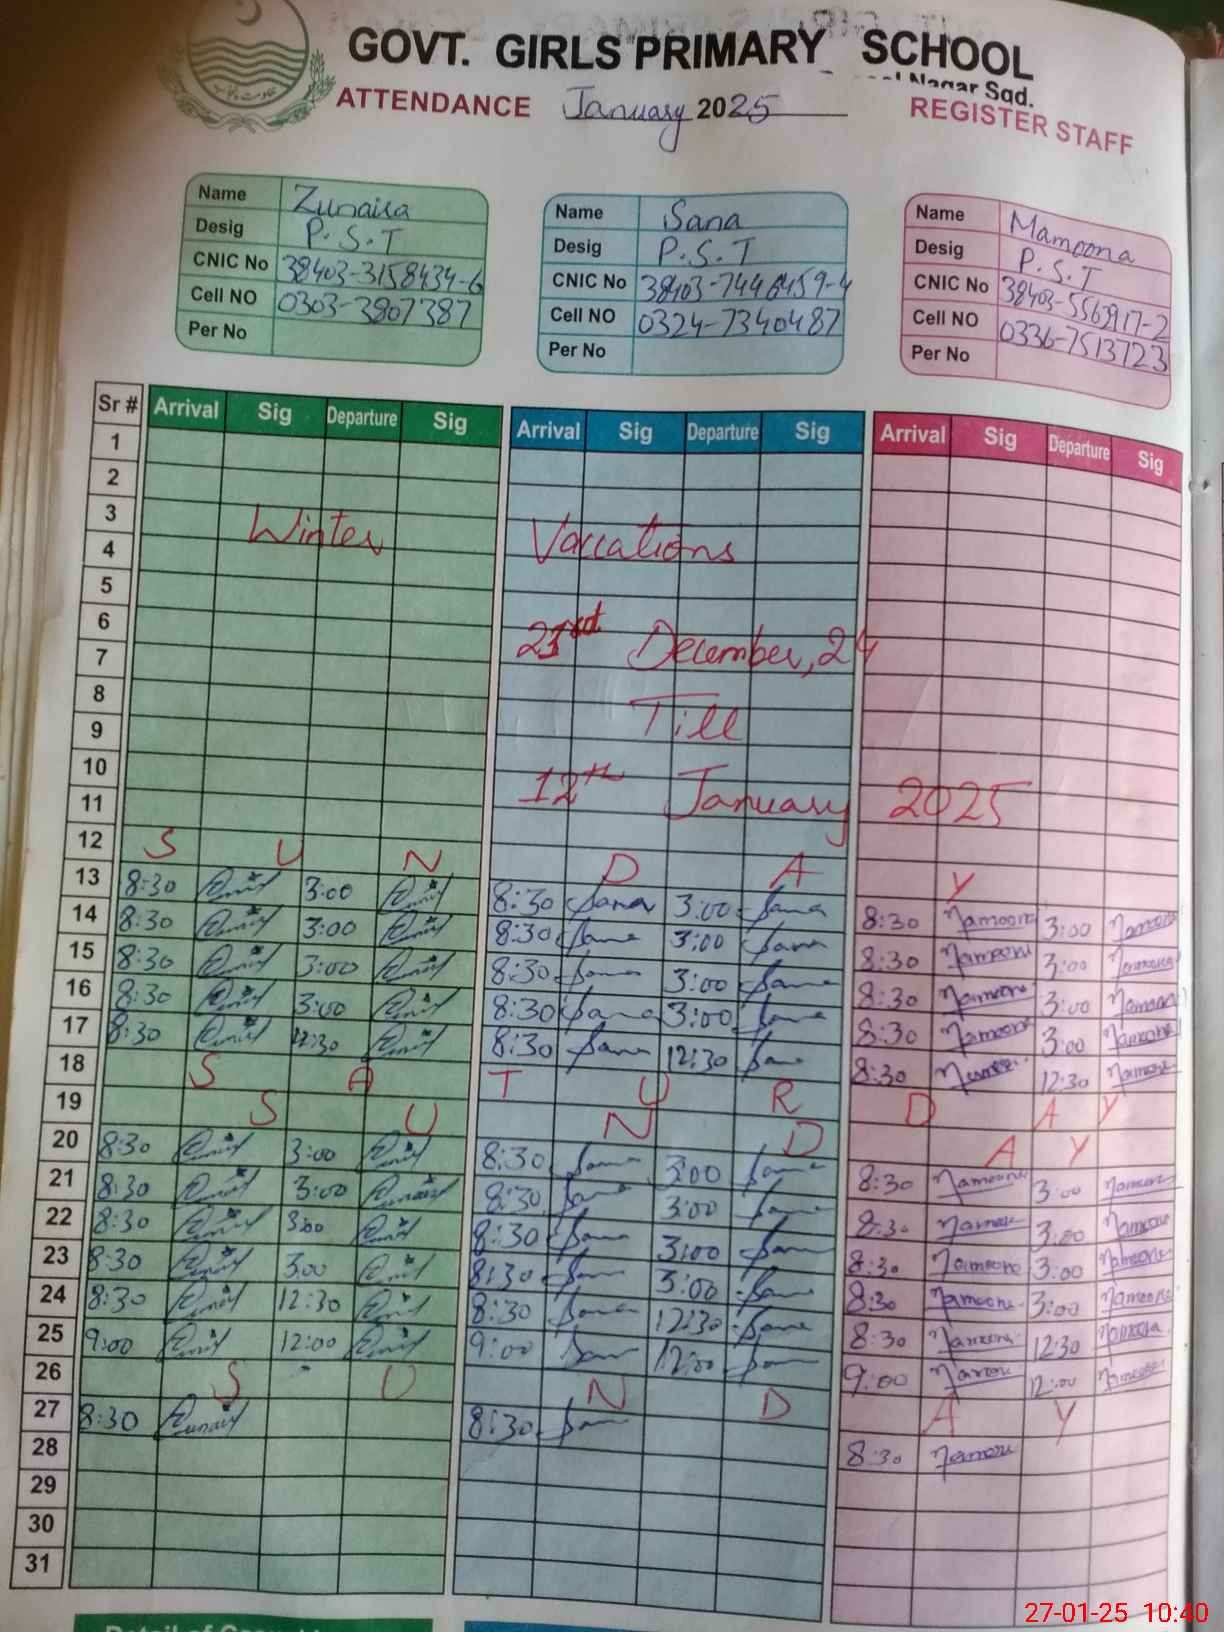 GOVT. GIRLS PRIMARY SCHOOL
Nagar Sgd.
ATTENDANCE January 2025 REGISTER STAFF
Name Zunaira
Desig P.S.T
CNIC No 38403-3158434-6
Cell NO 0303-3807387
Per No
Name Sana
Desig P.S.T
CNIC No 38403-7446459-4
Cell NO 0324-7340487
Per No
Name Mamoona
Desig P.S.T
CNIC No 38403-5569917-2
Cell NO 0336-7513723
Per No
Sr # Arrival Sig Departure Sig Arrival Sig Departure Sig Arrival Sig Departure Sig
1
2
3
Winter Vaccations
4
5
6
21st December, 24
7
8
Till
9
10
12th January 2025
11
12 S U N D A Y
13 8:30 3:00 8:30 Sana 3:00 Sana 8:30 Mamoona 3:00 Mamoona
14 8:30 3:00 8:30 Sana 3:00 Sana 8:30 Mamoona 3:00 Mamoona
15 8:30 3:00 8:30 Sana 3:00 Sana 8:30 Mamoona 3:00 Mamoona
16 8:30 3:00 8:30 Sana 3:00 Sana 8:30 Mamoona 3:00 Mamoona
17 8:30 12:30 8:30 Sana 12:30 Sana 8:30 Mamoona 12:30 Mamoona
18 S A T U R D A Y
19 S U N D A Y
20 8:30 3:00 8:30 Sana 3:00 Sana 8:30 Mamoona 3:00 Mamoona
21 8:30 3:00 8:30 Sana 3:00 Sana 8:30 Mamoona 3:00 Mamoona
22 8:30 3:00 8:30 Sana 3:00 Sana 8:30 Mamoona 3:00 Mamoona
23 8:30 3:00 8:30 Sana 3:00 Sana 8:30 Mamoona 3:00 Mamoona
24 8:30 12:30 8:30 Sana 12:30 Sana 8:30 Mamoona 12:30 Mamoona
25 9:00 12:00 9:00 Sana 12:00 Sana 9:00 Mamoona 12:00 Mamoona
26 S U N D A Y
27 8:30 Zunaira 8:30 Sana 8:30 Mamoona
28
29
30
31
27-01-25 10:40